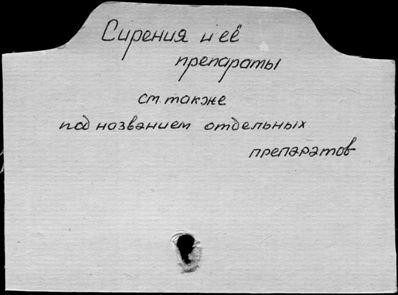 Сирения и её
препараты
см также
под названием отдельных
препаратов